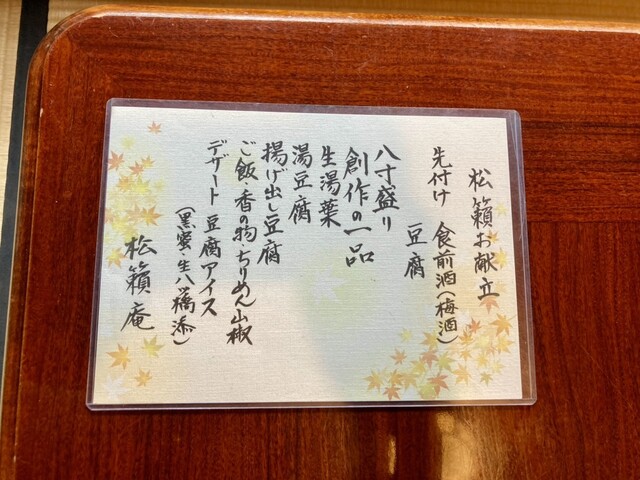 松籟お献立
先付け 食前酒(梅酒)
豆腐
八寸盛り
創作の一品
生湯葉
湯豆腐
揚げ出し豆腐
ご飯・香の物・ちりめん山椒
デザート 豆腐アイス
(黒蜜・生八ツ橋添)
松籟庵